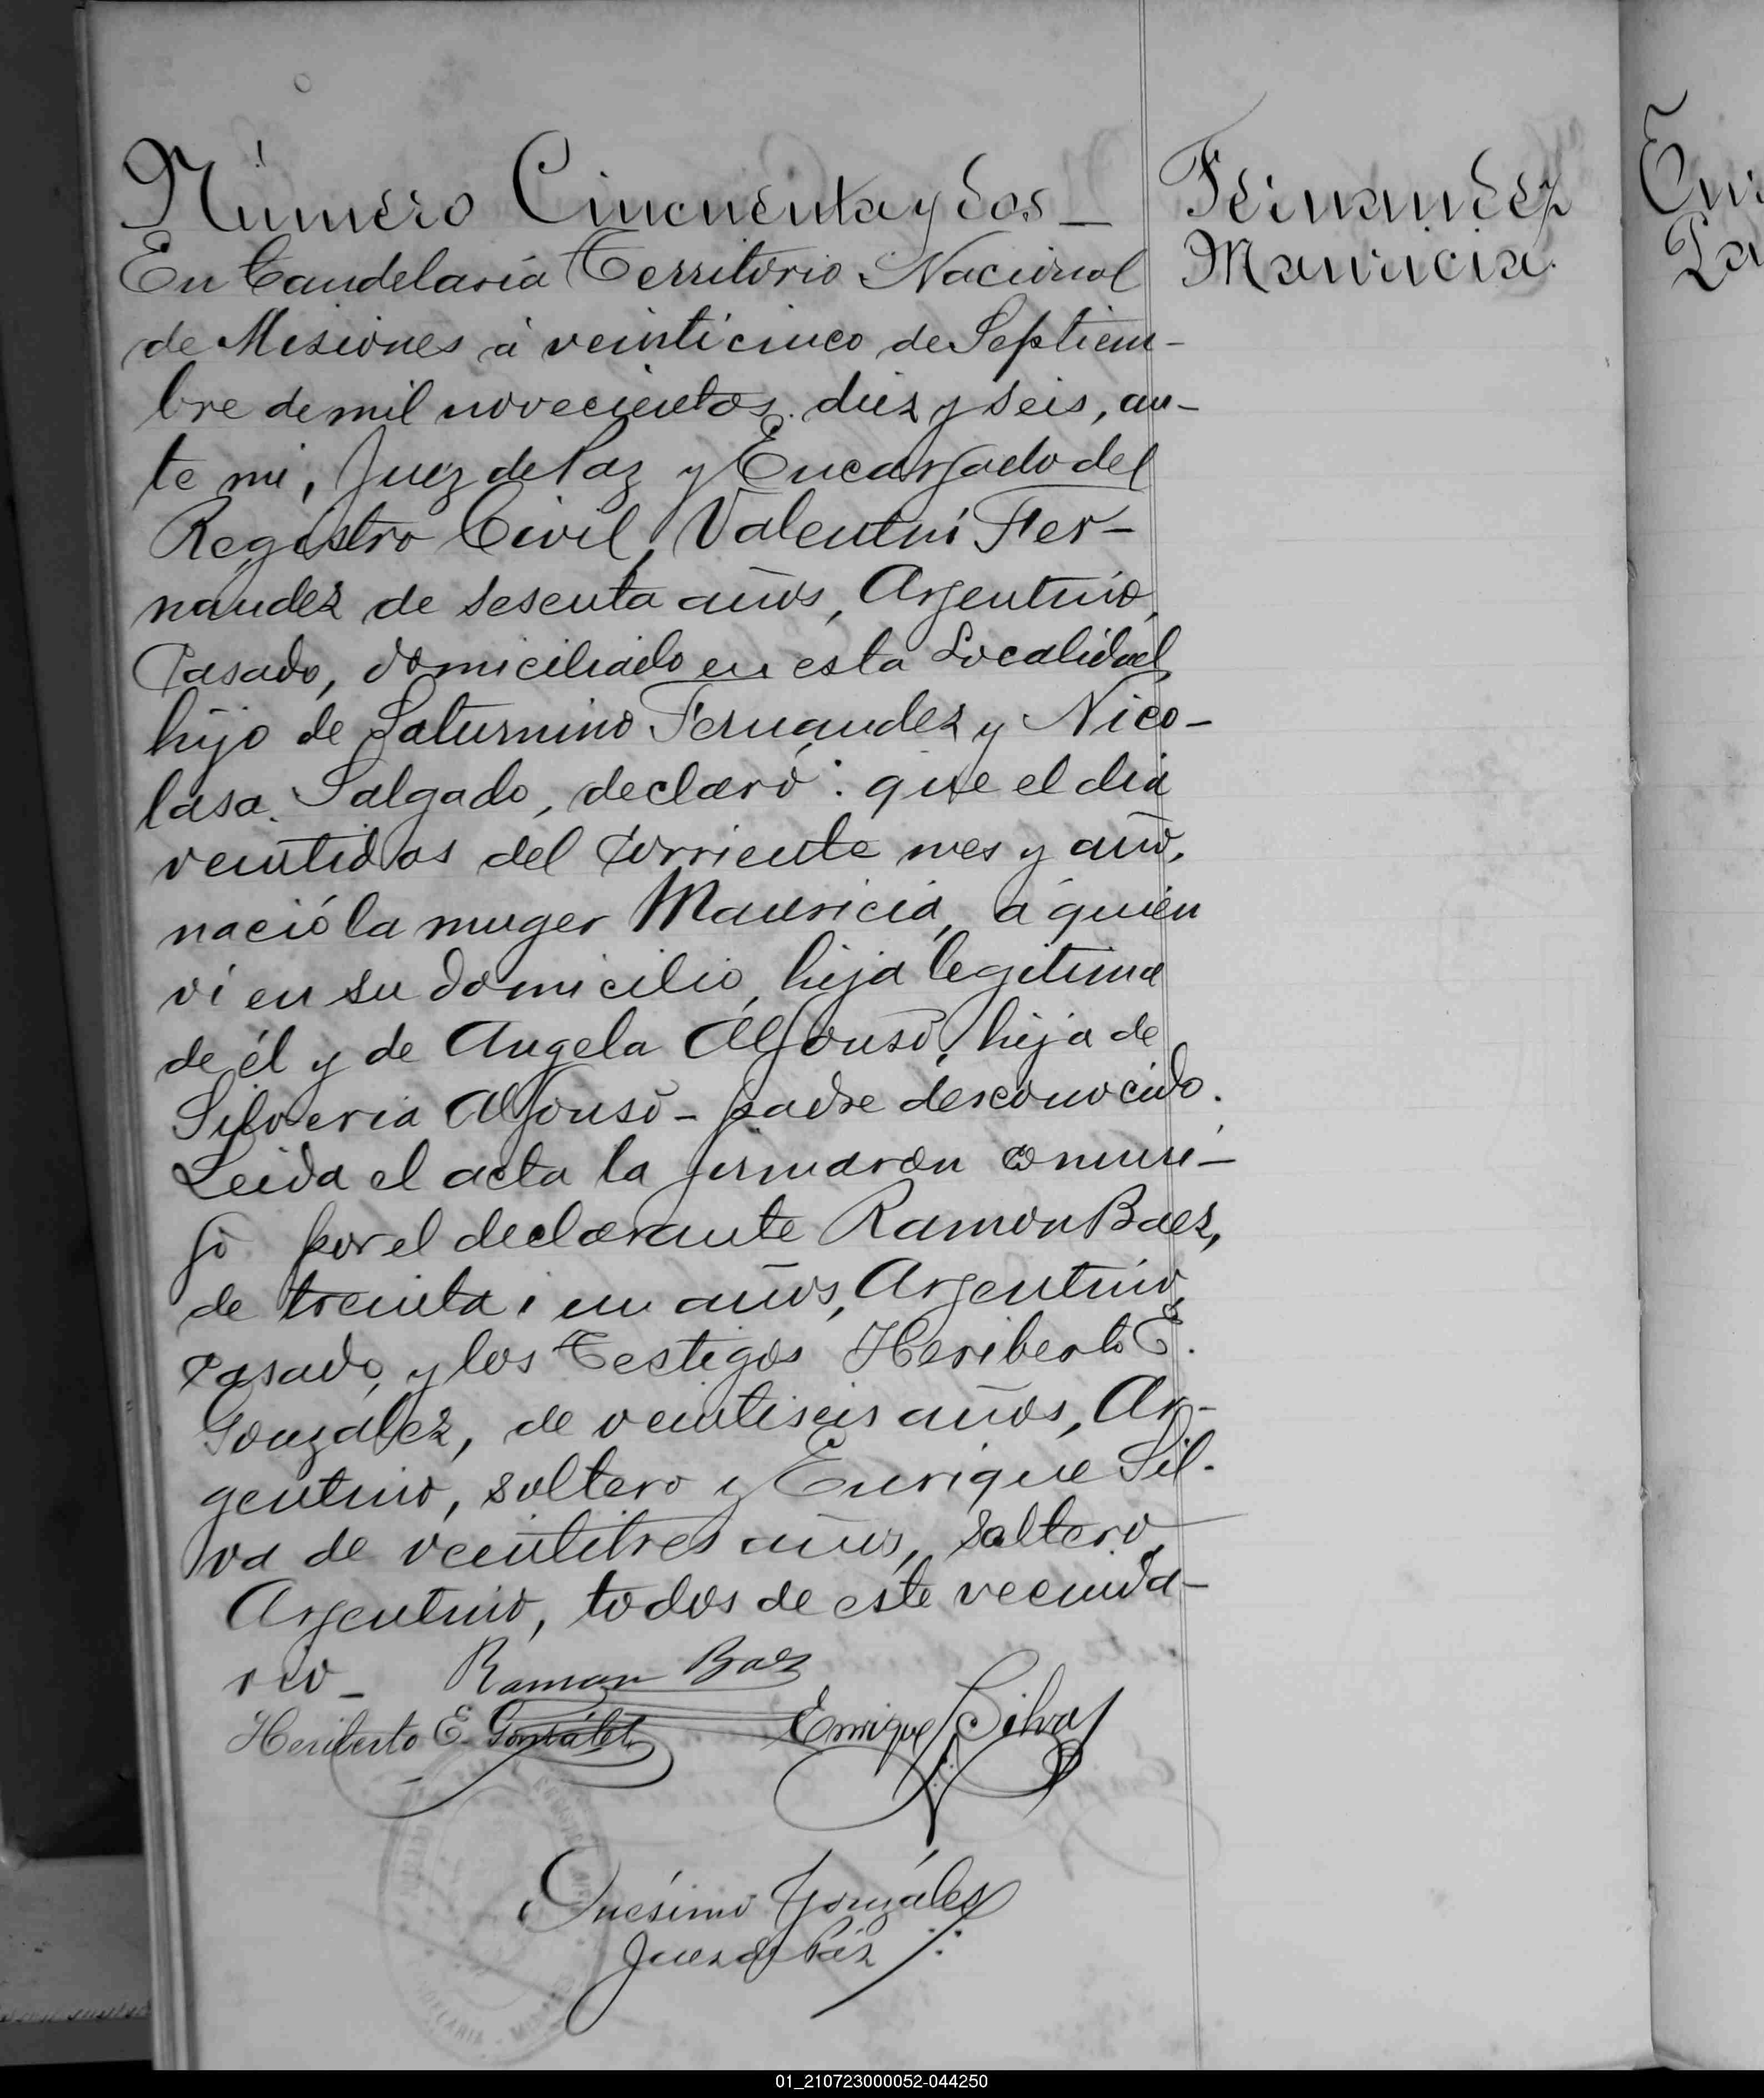 Número Cincuenta y dos _
Fernandez
Mauricia.
En Candelaria Territorio Nacional
de Misiones á veinticinco de Septiem-
bre de mil novecientos diez y seis, an-
te mi, Juez de Paz y Encargado del
Registro Civil, Valentin Fer-
nandez de sesenta años, Argentino,
Casado, domiciliado en esta Localidad,
hijo de Saturnino Fernandez y Nico-
lasa Salgado, declaró: que el dia
veintidos del corriente mes y año,
nació la muger Mauricia, á quien
ví en su domicilio, hija legitima
de él y de Angela Alfonso, hija de
Silveria Alfonso - padre desconocido.
Leida el acta la firmaron conmi-
go por el declarante Ramon Baez,
de treinta i un años, Argentino,
Casado, y los Testigos Heriberto E.
Gonzalez, de veintiseis años, Ar-
gentino, soltero y Enrique Sil-
va de veintitres años, soltero,
Argentino, todos de este vecinda-
rio _ Ramon Baez
Heriberto E. González Enrique Silva
Onésimo Gonzáles
Juez de Paz
01_210723000052-044250